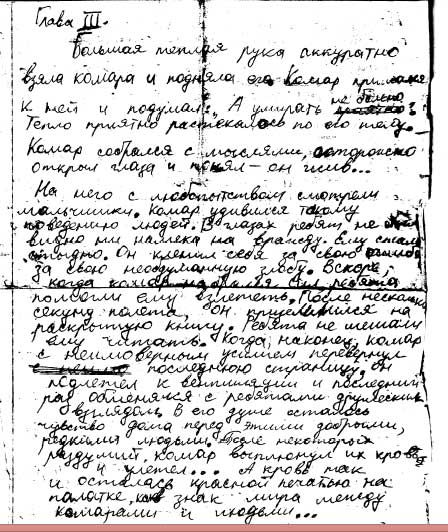 Глава III.
Большая теплая рука аккуратно
взяла комара и подняла его. Комар
к ней и подумал: „А умирать не больно
Тепло приятно растекалось по его телу.
Комар собрался с мыслями, осторожно
открыл глаза и понял – он жив...
На него с любопытством смотрели
мальчишки. Комар удивился такому
поведению людей. В глазах ребят не
видно ни намека на вражду. Ему стало
стыдно. Он клеймил себя за свою
за свою необдуманную злобу. Вскоре,
когда комар набрался сил ребята
помогли ему взлететь. После нескольких
секунд полета, он приземлился на
раскрытую книгу. Ребята не мешали
ему читать. Когда, наконец, комар
с неимоверным усилием перевернул
последнюю страницу, он
подлетел к вентиляции и последний
раз обменялся с ребятами дружеским
взглядом. В его душе осталось
чувство долга перед этими добрыми,
редкими людьми. После некоторых
раздумий, комар выплюнул их кровь
и улетел... А кровь так
и осталась красной печатью на
палатке, как знак мира между
комарами и людьми...